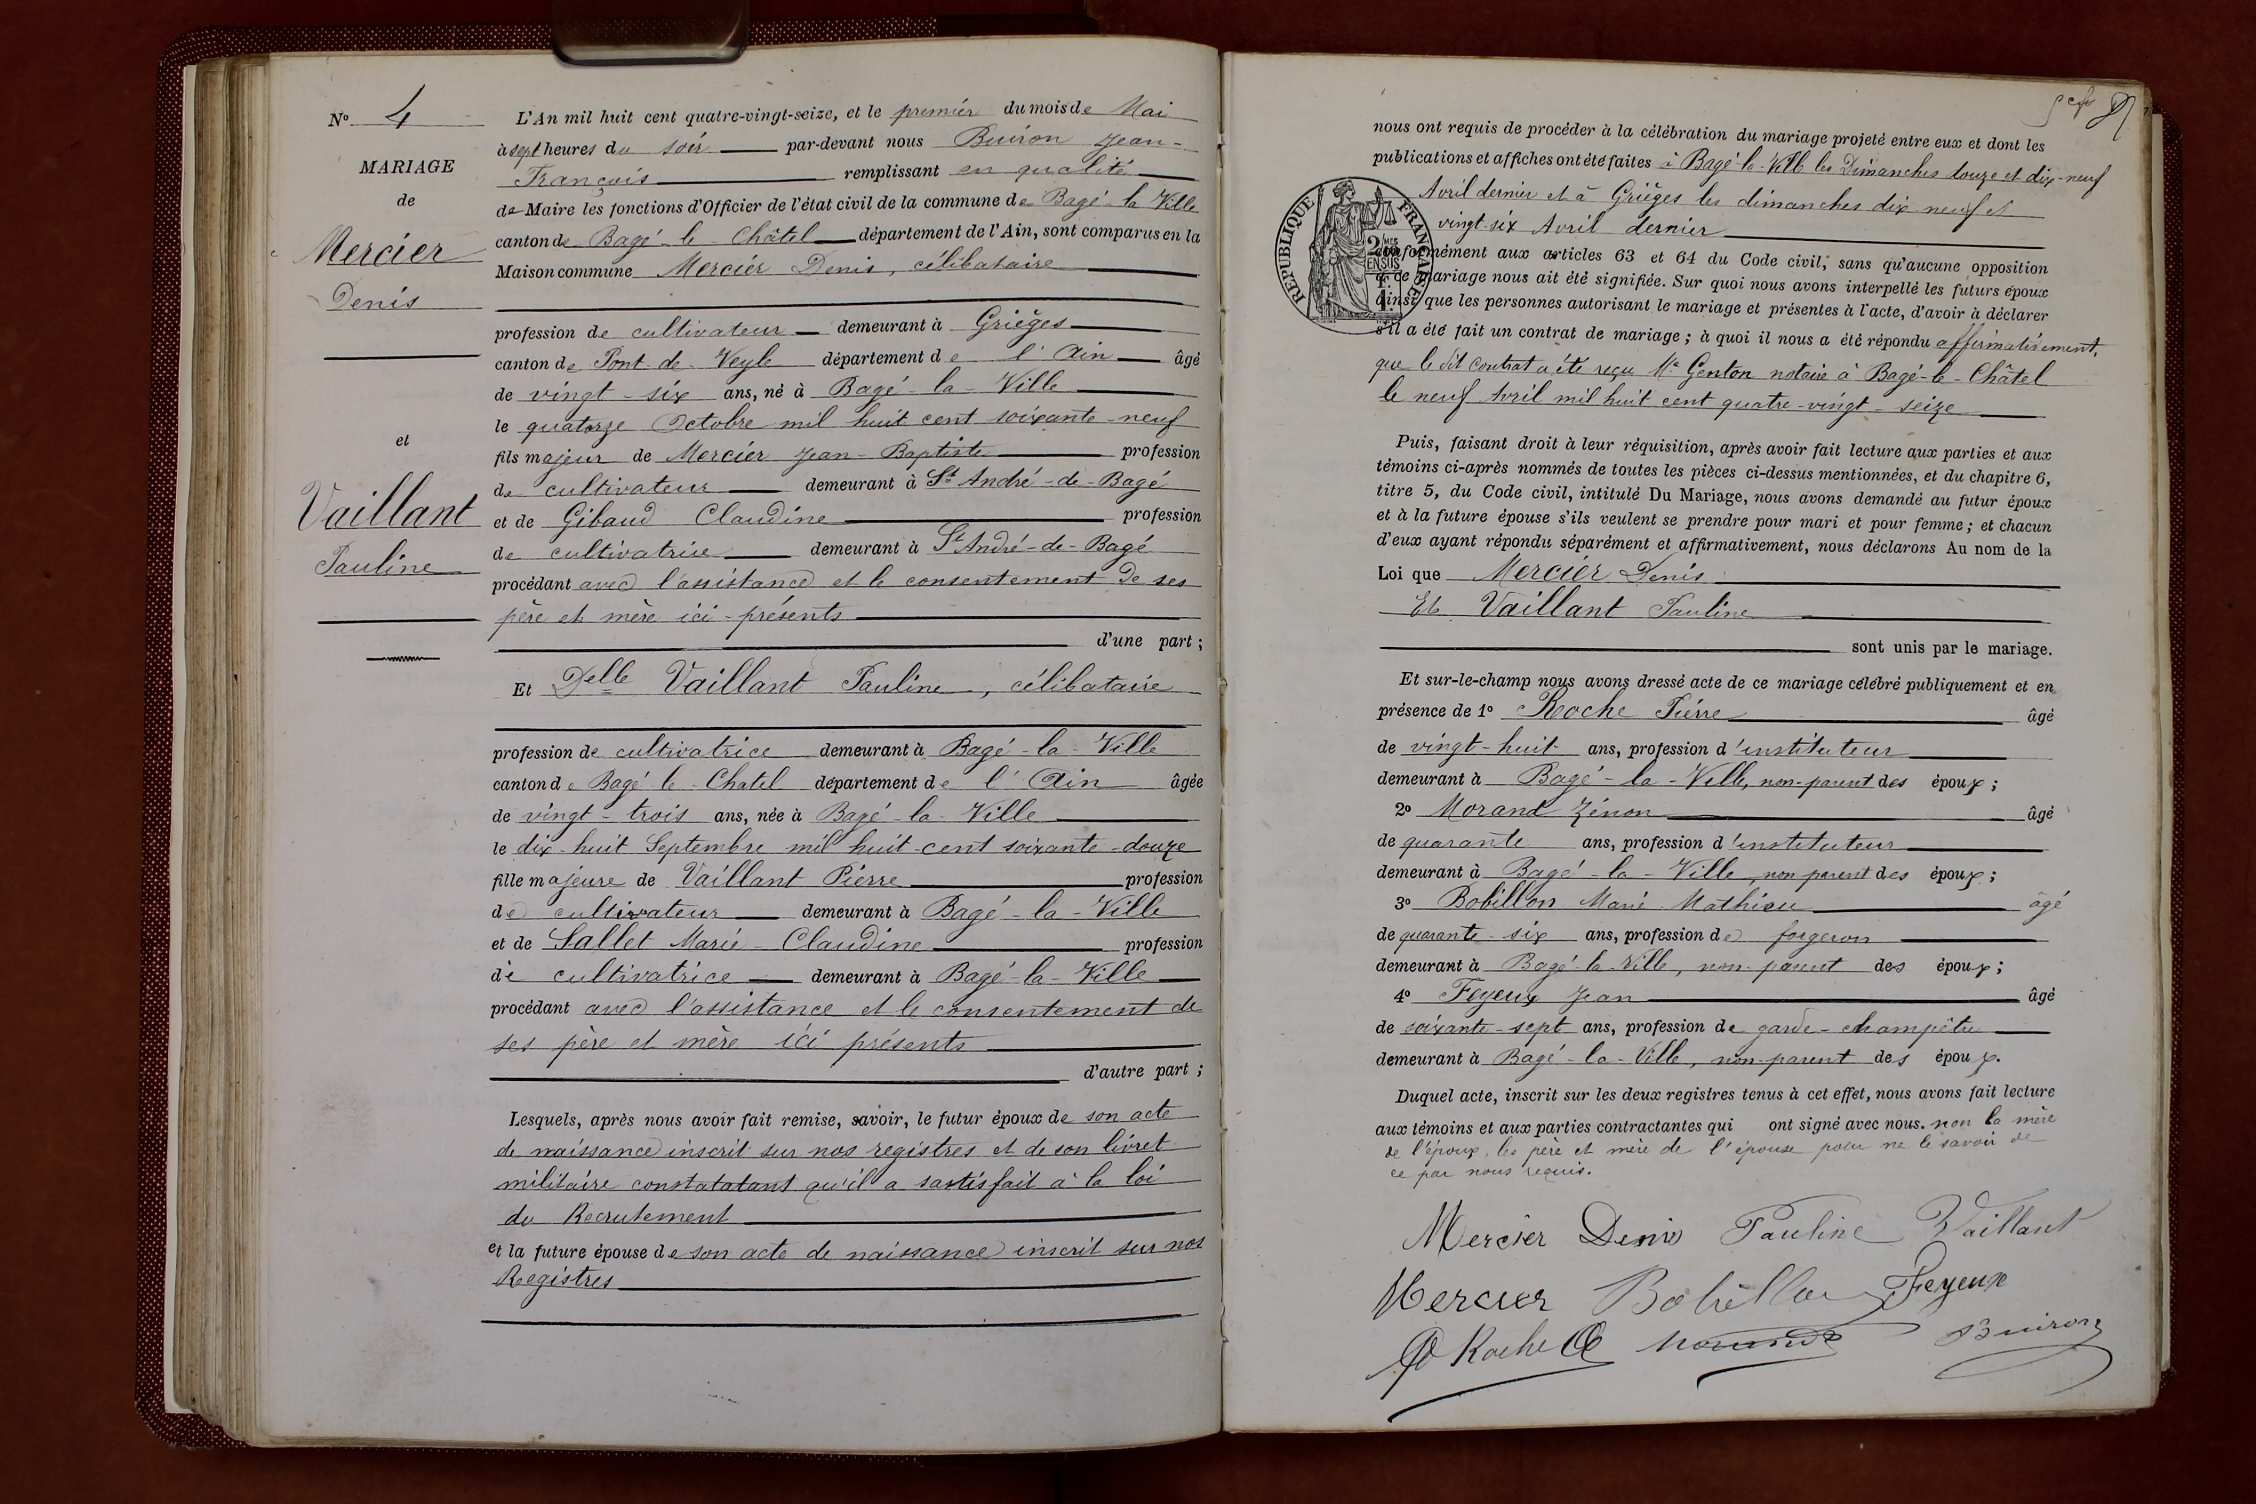 N° 4
MARIAGE
de
Mercier
Denis
et
Vaillant
Pauline
L'An mil huit cent quatre-vingt-seize, et le premier du mois de Mai
à sept heures du soir par-devant nous Buiron Jean-
François remplissant en qualité
de Maire les fonctions d'Officier de l'état civil de la commune de Bagé-la-Ville
canton de Bagé-le-Châtel département de l'Ain, sont comparus en la
Maison commune Mercier Denis, célibataire
profession de cultivateur demeurant à Grièges
canton de Pont-de-Veyle département de l'Ain âgé
de vingt-six ans, né à Bagé-la-Ville
le quatorze Octobre mil huit cent soixante-neuf
fils majeur de Mercier Jean-Baptiste profession
de cultivateur demeurant à St André-de-Bagé
et de Gibaud Claudine profession
de cultivatrice demeurant à St André-de-Bagé
procédant avec l'assistance et le consentement de ses
père et mère ici-présents
d'une part ;
Et Delle Vaillant Pauline, célibataire
profession de cultivatrice demeurant à Bagé-la-Ville
canton de Bagé-le-Chatel département de l'Ain âgée
de vingt-trois ans, née à Bagé-la-Ville
le dix-huit Septembre mil huit-cent soixante-douze
fille majeure de Vaillant Pierre profession
de cultivateur demeurant à Bagé-la-Ville
et de Sallet Marie-Claudine profession
de cultivatrice demeurant à Bagé-la-Ville
procédant avec l'assistance et le consentement de
ses père et mère ici présents
d'autre part ;
Lesquels, après nous avoir fait remise, savoir, le futur époux de son acte
de naissance inscrit sur nos registres et de son livret
militaire constatatant qu'il a sastisfait à la loi
du Recrutement
et la future épouse de son acte de naissance inscrit sur nos
Registres
nous ont requis de procéder à la célébration du mariage projeté entre eux et dont les
publications et affiches ont été faites à Bagé-la-Ville les Dimanches douze et dix-neuf
Avril dernier et à Grièges les dimanches dix neuf et
vingt-six Avril dernier
RÉPUBLIQUE FRANÇAISE
conformément aux articles 63 et 64 du Code civil, sans qu'aucune opposition
à ce mariage nous ait été signifiée. Sur quoi nous avons interpellé les futurs époux
ainsi que les personnes autorisant le mariage et présentes à l'acte, d'avoir à déclarer
s'il a été fait un contrat de mariage ; à quoi il nous a été répondu affirmativement,
que le dit contrat a été reçu Me Genton notaire à Bagé-le-Châtel
le neuf Avril mil huit cent quatre-vingt-seize
Puis, faisant droit à leur réquisition, après avoir fait lecture aux parties et aux
témoins ci-après nommés de toutes les pièces ci-dessus mentionnées, et du chapitre 6,
titre 5, du Code civil, intitulé Du Mariage, nous avons demandé au futur époux
et à la future épouse s'ils veulent se prendre pour mari et pour femme ; et chacun
d'eux ayant répondu séparément et affirmativement, nous déclarons Au nom de la
Loi que Mercier Denis
Et Vaillant Pauline
sont unis par le mariage.
Et sur-le-champ nous avons dressé acte de ce mariage célébré publiquement et en
présence de 1° Roche Pierre âgé
de vingt-huit ans, profession d'instituteur
demeurant à Bagé-la-Ville, non-parent des époux ;
2° Morand Zénon âgé
de quarante ans, profession d'instituteur
demeurant à Bagé-la-Ville, non parent des époux ;
3° Bobillon Marie Mathieu âgé
de quarante-six ans, profession de forgeron
demeurant à Bagé-la-Ville, non-parent des époux ;
4° Feyeux Jean âgé
de soixante-sept ans, profession de garde-champêtre
demeurant à Bagé-la-Ville, non-parent des époux.
Duquel acte, inscrit sur les deux registres tenus à cet effet, nous avons fait lecture
aux témoins et aux parties contractantes qui ont signé avec nous. non la mère
de l'époux, les père et mère de l'épouse pour ne le savoir de
ce par nous requis.
Mercier Denis Pauline Vaillant
Mercier Bobillon Feyeux
Roche Morand Buiron